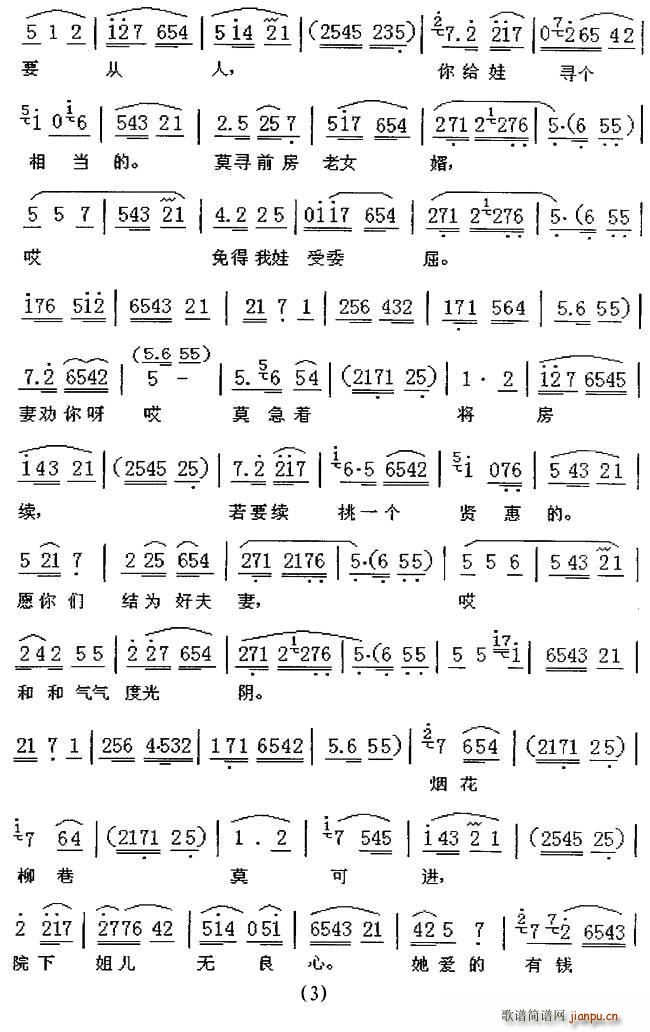 5 1 2 | 127 654 | 514 21 | (2545 235) | 7.2 217 | 07265 42 |
要 从 人, 你给娃 寻个
1 06 | 543 21 | 2.5 25 7 | 517 654 | 271 21276 | 5·(6 55) |
相 当 的。 莫寻前房 老女 婿,
5 5 7 | 543 21 | 4.2 2 5 | 0117 654 | 271 21276 | 5·(6 55 |
哎 免得我娃 受委 屈。
176 512 | 6543 21 | 21 7 1 | 256 432 | 171 564 | 5.6 55) |
(5.6 55)
7.2 6542 | 5 - | 5. 56 54 | (2171 25) | 1 · 2 | 127 6545 |
妻劝你呀 哎 莫急着 将 房
143 21 | (2545 25) | 7.2 217 | 16·5 6542 | 51 076 | 5 43 21 |
续, 若要续 挑一个 贤 惠 的。
5 21 7 | 2 25 654 | 271 2176 | 5·(6 55) | 5 5 6 | 5 43 21 |
愿你们 结为好夫 妻, 哎
242 55 | 2 27 654 | 271 21276 | 5·(6 55 | 5 5 171 | 6543 21 |
和和气气 度光 阴。
21 7 1 | 256 4·532 | 171 6542 | 5.6 55) | 27 654 | (2171 25) |
烟花
17 64 | (2171 25) | 1 . 2 | 17 545 | 143 2 1 | (2545 25) |
柳巷 莫 可 进,
2 217 | 2776 42 | 514 051 | 6543 21 | 42 5 7 | 27 72 6543 |
院下 姐儿 无 良 心。 她爱的 有钱
(3)
歌谱简谱网 jianpu.cn